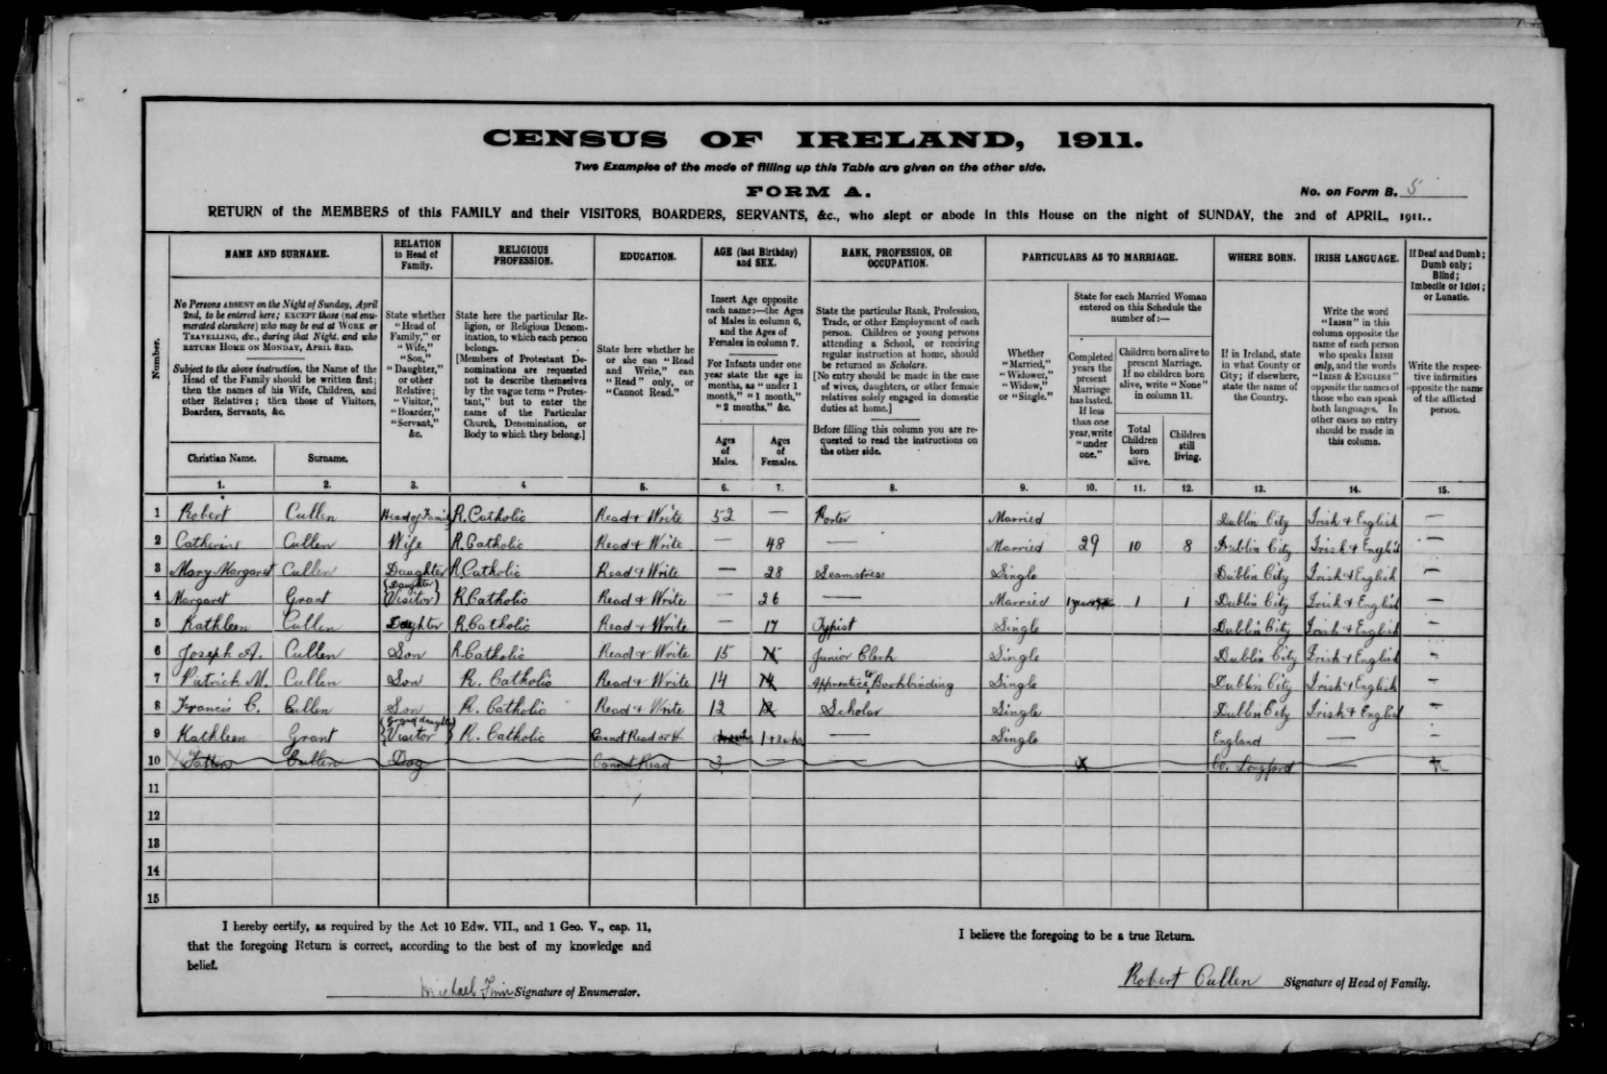 CENSUS OF IRELAND, 1911.
Two Examples of the mode of filling up this Table are given on the other side.
FORM A.
No. on Form B. 5
RETURN of the MEMBERS of this FAMILY and their VISITORS, BOARDERS, SERVANTS, &c., who slept or abode in this House on the night of SUNDAY, the 2nd of APRIL, 1911..
Number.
NAME AND SURNAME.
No Persons ABSENT on the Night of Sunday, April
2nd, to be entered here; EXCEPT those (not enu-
merated elsewhere) who may be out at WORK or
TRAVELLING, &c., during that Night, and who
RETURN HOME ON MONDAY, APRIL 3RD.
Subject to the above instruction, the Name of the
Head of the Family should be written first;
then the names of his Wife, Children, and
other Relatives; then those of Visitors,
Boarders, Servants, &c.
Christian Name.
Surname.
RELATION
to Head of
Family.
State whether
"Head of
Family," or
"Wife,"
"Son,"
"Daughter,"
or other
Relative;
"Visitor,"
"Boarder,"
"Servant,"
&c.
RELIGIOUS
PROFESSION.
State here the particular Re-
ligion, or Religious Denom-
ination, to which each person
belongs.
[Members of Protestant De-
nominations are requested
not to describe themselves
by the vague term "Protes-
tant," but to enter the
name of the Particular
Church, Denomination, or
Body to which they belong.]
EDUCATION.
State here whether he
or she can "Read
and Write," can
"Read" only, or
"Cannot Read."
AGE (last Birthday)
and SEX.
Insert Age opposite
each name:—the Ages
of Males in column 6,
and the Ages of
Females in column 7.
For Infants under one
year state the age in
months, as "under 1
month," "1 month,"
"2 months," &c.
Ages
of
Males.
Ages
of
Females.
RANK, PROFESSION, OR
OCCUPATION.
State the particular Rank, Profession,
Trade, or other Employment of each
person. Children or young persons
attending a School, or receiving
regular instruction at home, should
be returned as Scholars.
[No entry should be made in the case
of wives, daughters, or other female
relatives solely engaged in domestic
duties at home.]
Before filling this column you are re-
quested to read the instructions on
the other side.
PARTICULARS AS TO MARRIAGE.
Whether
"Married,"
"Widower,"
"Widow,"
or "Single."
State for each Married Woman
entered on this Schedule the
number of:—
Completed
years the
present
Marriage
has lasted.
If less
than one
year, write
"under
one."
Children born alive to
present Marriage.
If no children born
alive, write "None"
in column 11.
Total
Children
born
alive.
Children
still
living.
WHERE BORN.
If in Ireland, state
in what County or
City; if elsewhere,
state the name of
the Country.
IRISH LANGUAGE.
Write the word
"IRISH" in this
column opposite the
name of each person
who speaks IRISH
only, and the words
"IRISH & ENGLISH"
opposite the names of
those who can speak
both languages. In
other cases no entry
should be made in
this column.
If Deaf and Dumb;
Dumb only;
Blind;
Imbecile or Idiot;
or Lunatic.
Write the respec-
tive infirmities
opposite the name
of the afflicted
person.
1. 2. 3. 4. 5. 6. 7. 8. 9. 10. 11. 12. 13. 14. 15.
1 Robert Cullen Head of Family R. Catholic Read & Write 52 — Porter Married Dublin City Irish & English —
2 Catherine Cullen Wife R. Catholic Read & Write — 48 — Married 29 10 8 Dublin City Irish & English —
3 Mary Margaret Cullen Daughter R. Catholic Read & Write — 28 Seamstress Single Dublin City Irish & English —
4 Margaret Grant (Daughter) Visitor R. Catholic Read & Write — 26 — Married 1 1 Dublin City Irish & English —
5 Kathleen Cullen Daughter R. Catholic Read & Write — 17 Typist Single Dublin City Irish & English —
6 Joseph A. Cullen Son R. Catholic Read & Write 15 15 Junior Clerk Single Dublin City Irish & English —
7 Patrick M. Cullen Son R. Catholic Read & Write 14 14 Apprentice to Bookbinding Single Dublin City Irish & English —
8 Francis C. Cullen Son R. Catholic Read & Write 12 12 Scholar Single Dublin City Irish & English —
9 Kathleen Grant (Grand daughter) Visitor R. Catholic Cannot Read or W — Single England — —
10 Cullen Dog Cannot Read 3 — — X Co. Longford —
11
12
13
14
15
I hereby certify, as required by the Act 10 Edw. VII., and 1 Geo. V., cap. 11,
that the foregoing Return is correct, according to the best of my knowledge and
belief.
Michael Signature of Enumerator.
I believe the foregoing to be a true Return.
Robert Cullen Signature of Head of Family.